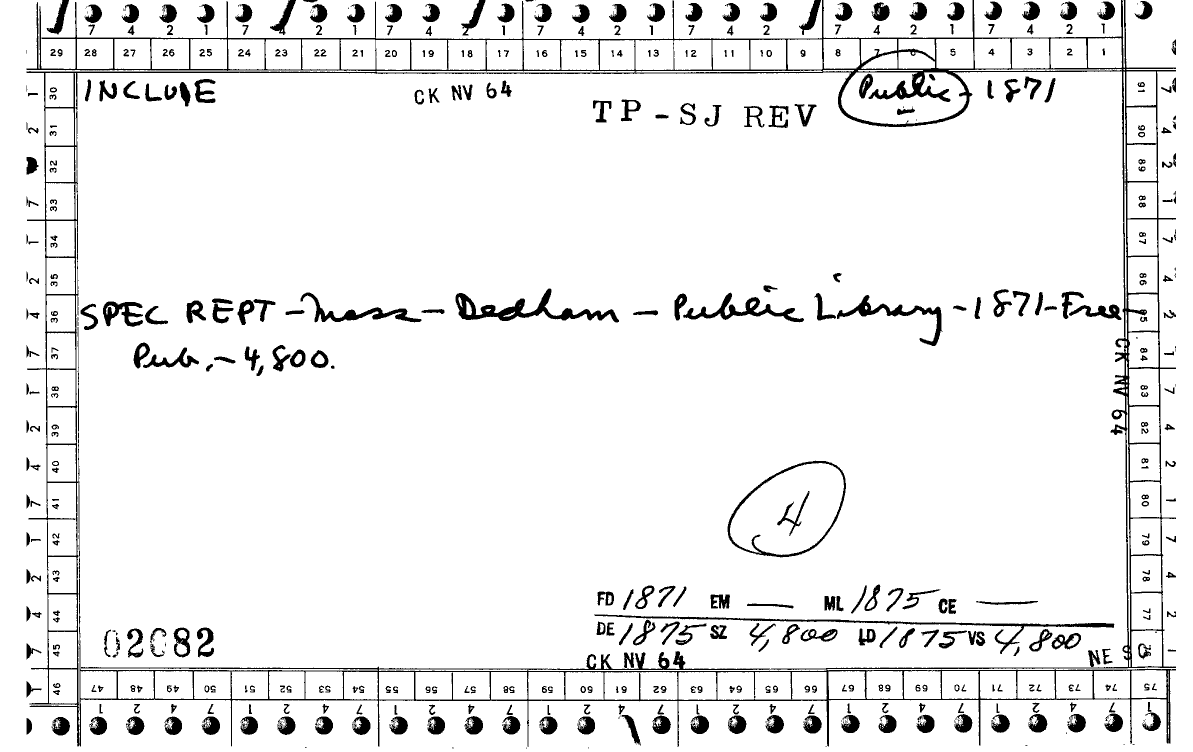 7 4 2 1 7 4 2 1 7 4 2 1 7 4 2 1 7 4 2 1 7 4 2 1 7 4 2 1
29 28 27 26 25 24 23 22 21 20 19 18 17 16 15 14 13 12 11 10 9 8 7 6 5 4 3 2 1
INCLUDE CK NV 64 Public - 1871
TP - SJ REV
SPEC REPT - Mass - Dedham - Public Library - 1871 - Free -
Pub. - 4,800.
CK NV 64
4
FD 1871 EM — ML 1875 CE —
DE 1875 SZ 4,800 LD 1875 VS 4,800
02082
CK NV 64
NE S
30 31 32 33 34 35 36 37 38 39 40 41 42 43 44 45 46
91 90 89 88 87 86 85 84 83 82 81 80 79 78 77 76
47 48 49 50 51 52 53 54 55 56 57 58 59 60 61 62 63 64 65 66 67 68 69 70 71 72 73 74 75
1 2 4 7 1 2 4 7 1 2 4 7 1 2 4 7 1 2 4 7 1 2 4 7 1 2 4 7 1